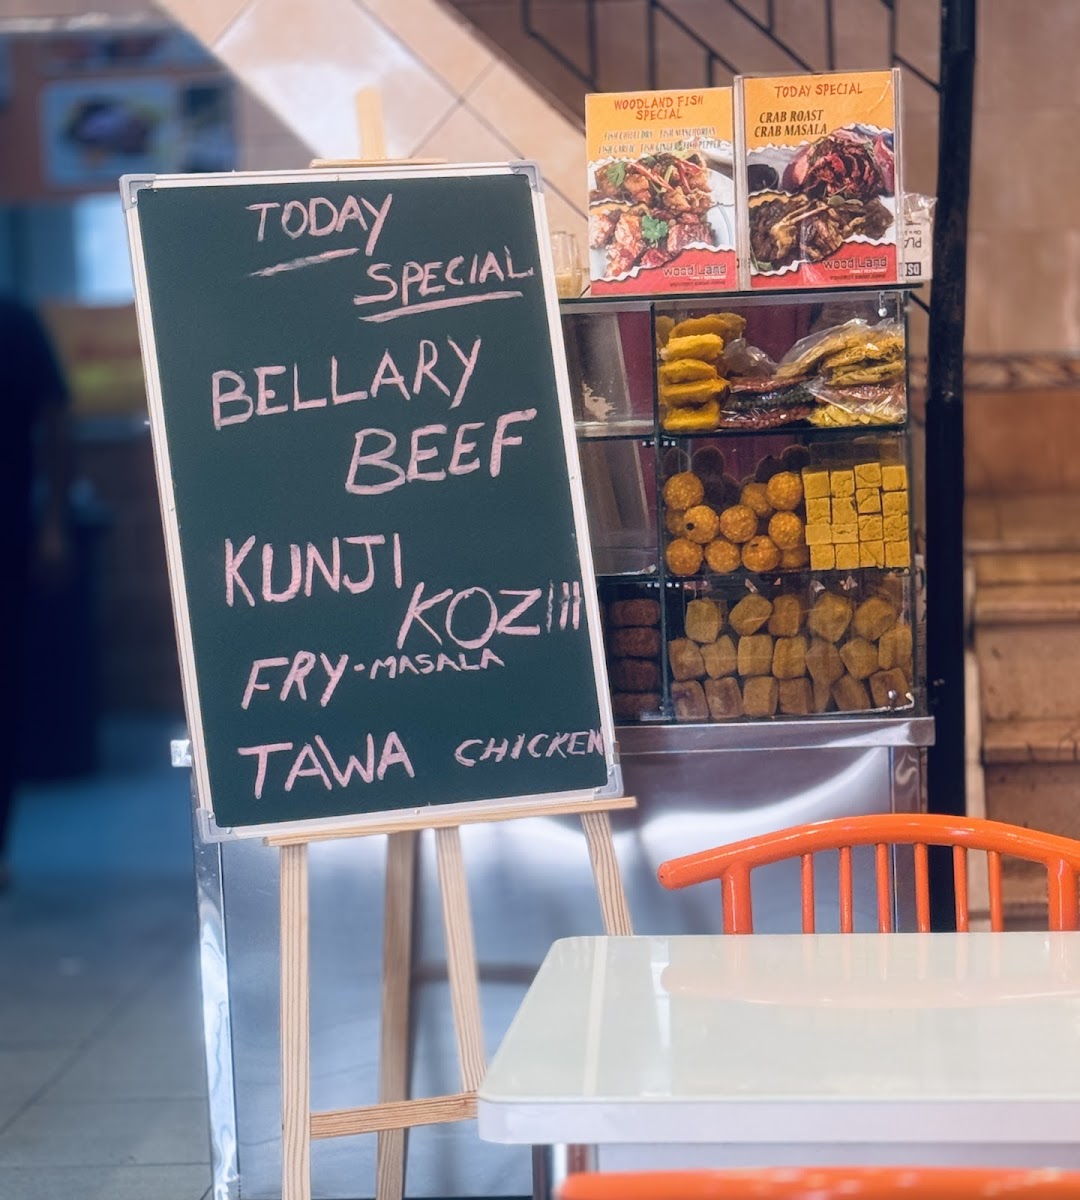 TODAY
SPECIAL
BELLARY
BEEF
KUNJI
KOZIII
FRY-MASALA
TAWA CHICKEN
WOODLAND FISH
SPECIAL
FISH CHILLI DRY FISH MANCHURIAN
FISH GARLIC FISH GINGER FISH PEPPER
wood Land
TODAY SPECIAL
CRAB ROAST
CRAB MASALA
wood Land
FAMILY RESTAURANT
PLA